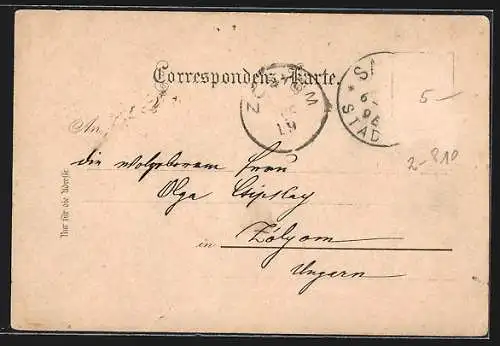 Correspondenz-Karte.
S
6
98
STAD
5-
2-810
An
die wolgeborene Frau
Olga
in Zólyom
Ungarn
Nur für die Adresse